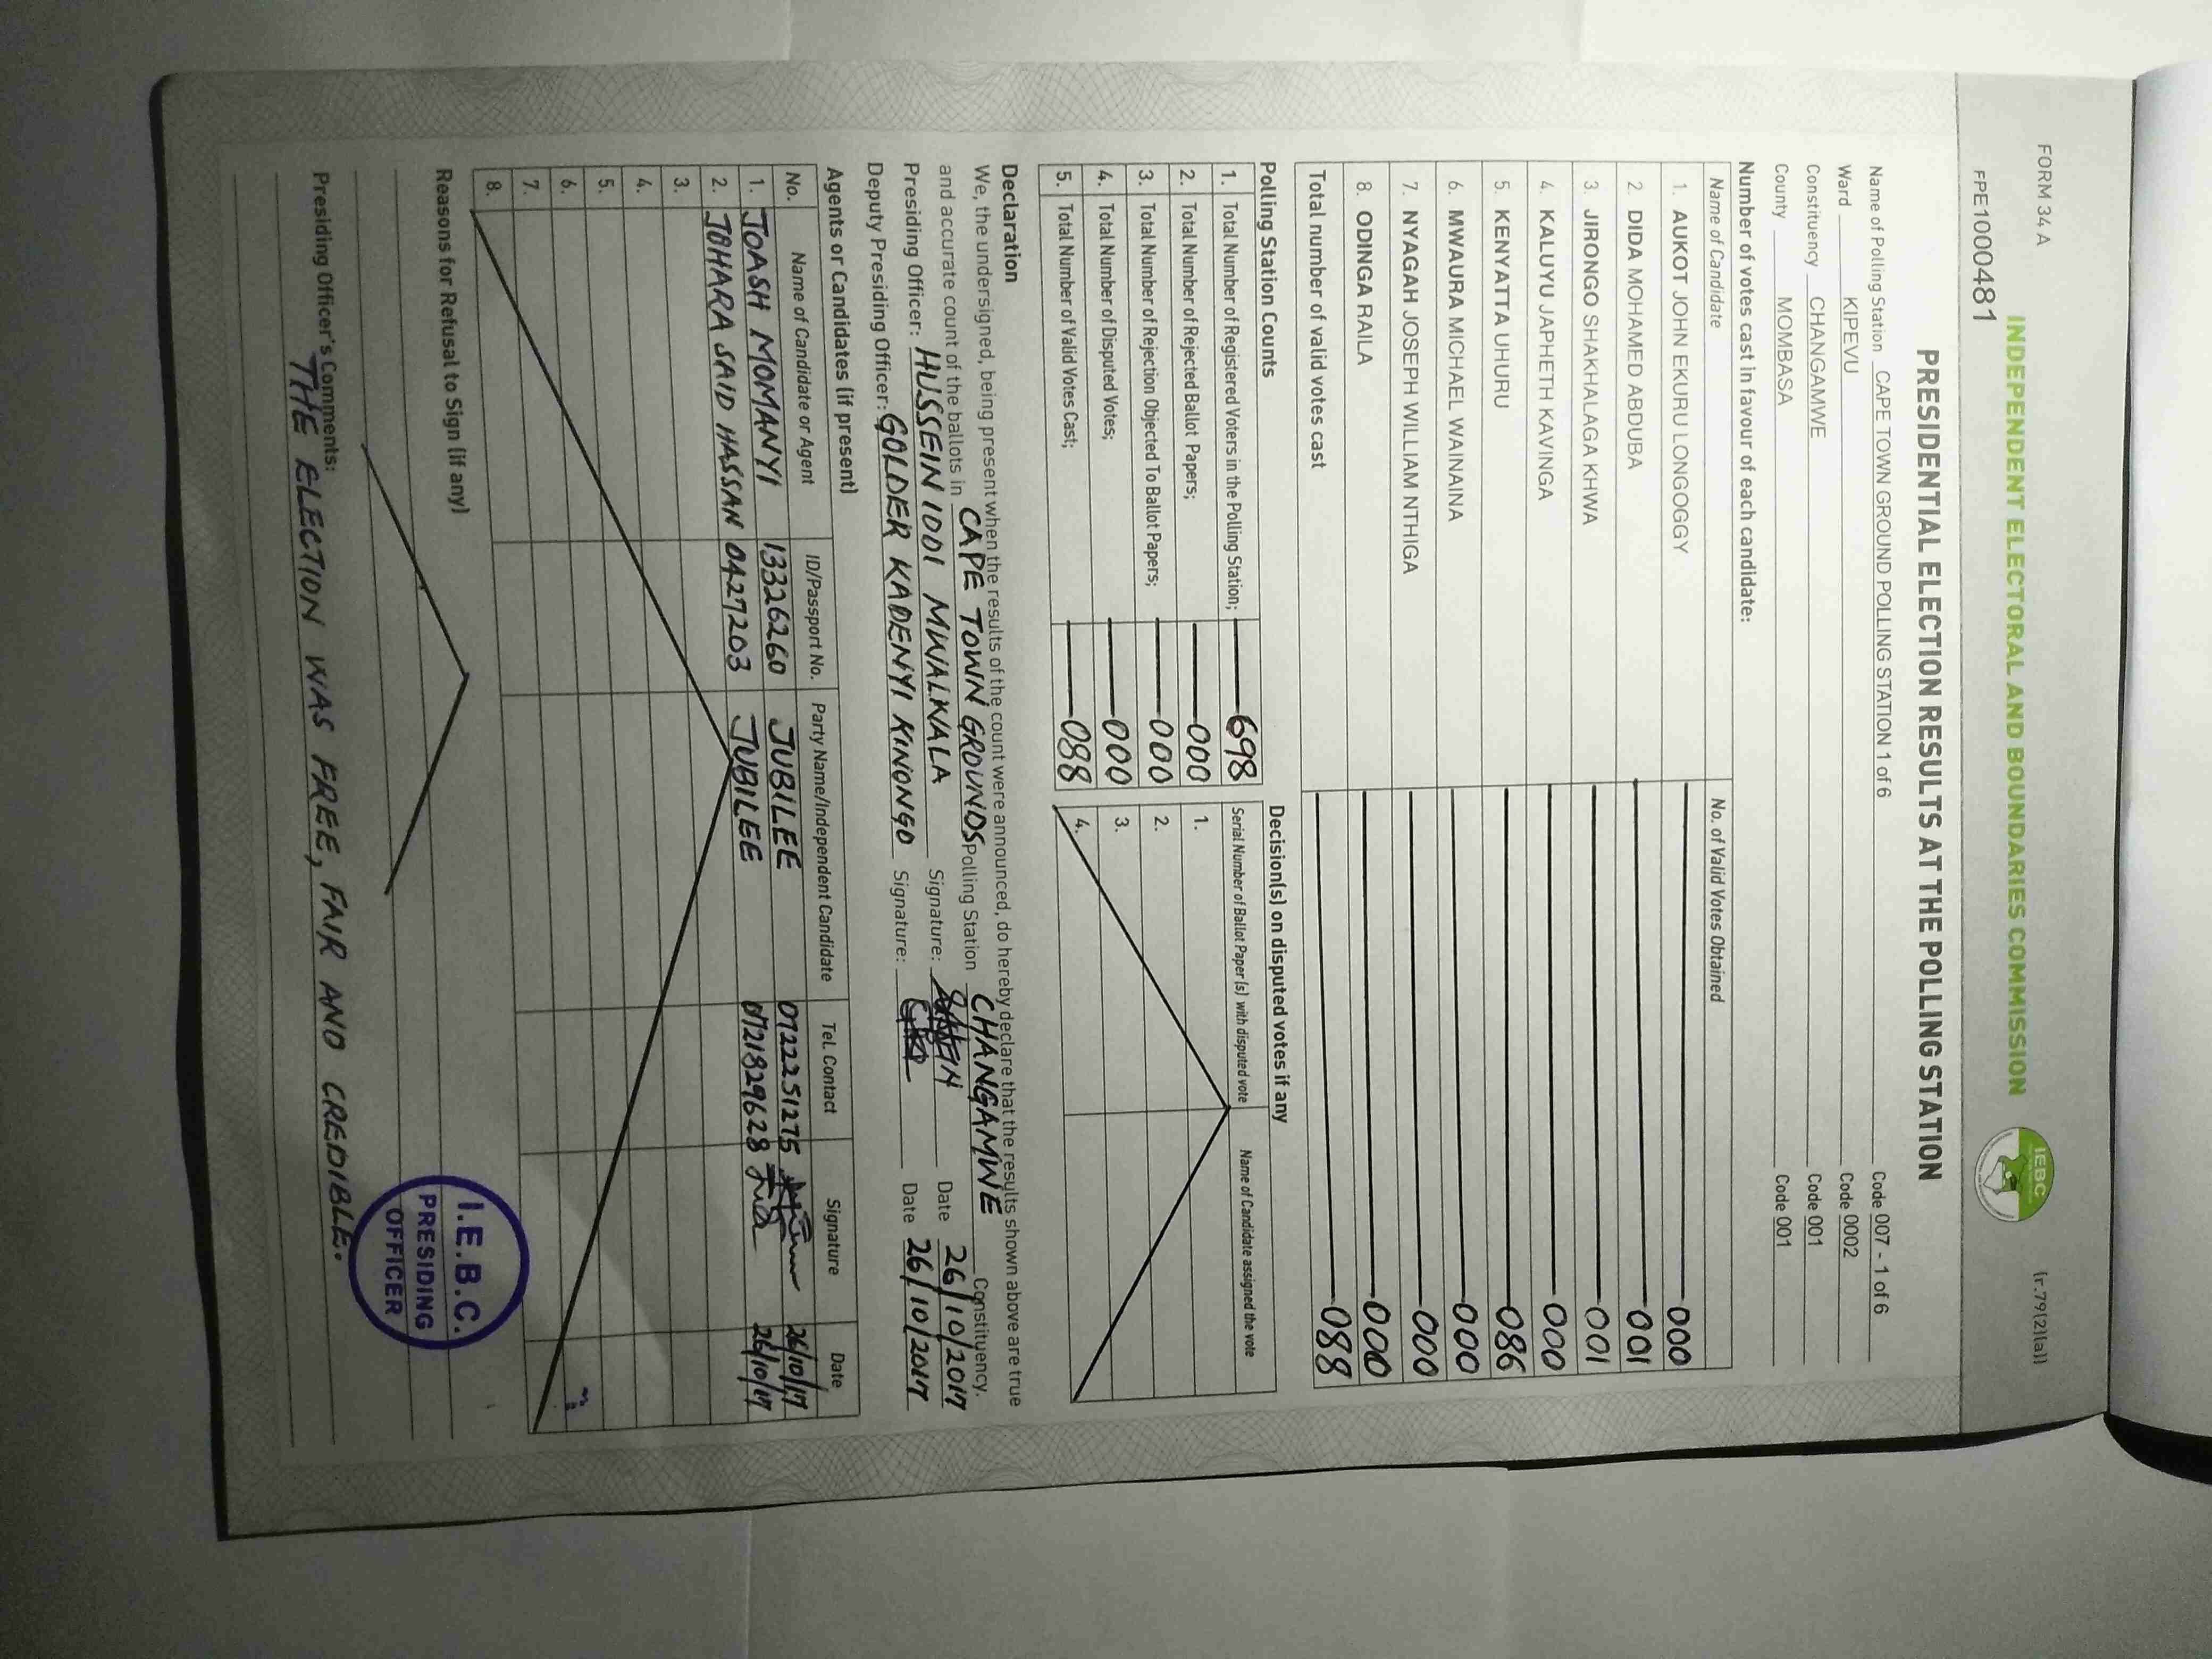 FORM 34 A
(r.79(2)(a))
INDEPENDENT ELECTORAL AND BOUNDARIES COMMISSION
IEBC
FPE1000481
PRESIDENTIAL ELECTION RESULTS AT THE POLLING STATION
Name of Polling Station CAPE TOWN GROUND POLLING STATION 1 of 6 Code 007 - 1 of 6
Ward KIPEVU Code 0002
Constituency CHANGAMWE Code 001
County MOMBASA Code 001
Number of votes cast in favour of each candidate:
Name of Candidate No. of Valid Votes Obtained
1. AUKOT JOHN EKURU LONGOGGY 000
2. DIDA MOHAMED ABDUBA 001
3. JIRONGO SHAKHALAGA KHWA 001
4. KALUYU JAPHETH KAVINGA 000
5. KENYATTA UHURU 086
6. MWAURA MICHAEL WAINAINA 000
7. NYAGAH JOSEPH WILLIAM NTHIGA 000
8. ODINGA RAILA 000
Total number of valid votes cast 088
Polling Station Counts
1. Total Number of Registered Voters in the Polling Station; 698
2. Total Number of Rejected Ballot Papers; 000
3. Total Number of Rejection Objected To Ballot Papers; 000
4. Total Number of Disputed Votes; 000
5. Total Number of Valid Votes Cast; 088
Decision(s) on disputed votes if any
Serial Number of Ballot Paper (s) with disputed vote Name of Candidate assigned the vote
1.
2.
3.
4.
Declaration
We, the undersigned, being present when the results of the count were announced, do hereby declare that the results shown above are true
and accurate count of the ballots in CAPE TOWN GROUNDS Polling Station CHANGAMWE Constituency.
Presiding Officer: HUSSEIN IDDI MWALWALA Signature: Date 26/10/2017
Deputy Presiding Officer: GOLDER KADENYI KINONGO Signature: Date 26/10/2017
Agents or Candidates (if present)
No. Name of Candidate or Agent ID/Passport No. Party Name/Independent Candidate Tel. Contact Signature Date
1. JOASH MOMANYI 13326260 JUBILEE 0722251275 26/10/17
2. JOHARA SAID HASSAN 0427203 JUBILEE 0721829628 26/10/17
3.
4.
5.
6.
7.
8.
Reasons for Refusal to Sign (if any)
Presiding Officer's Comments:
THE ELECTION WAS FREE, FAIR AND CREDIBLE.
I.E.B.C.
PRESIDING
OFFICER